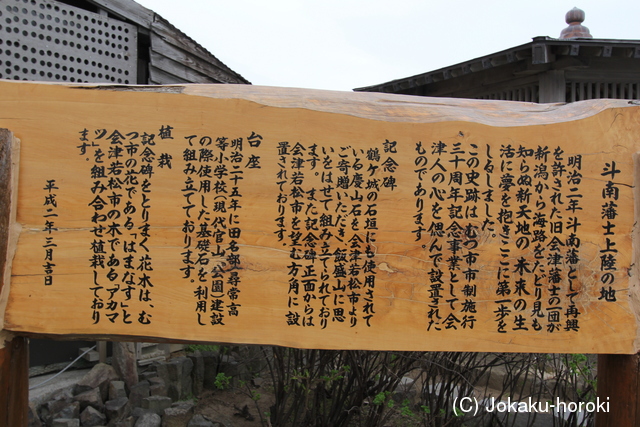 斗南藩士上陸の地
明治二年斗南藩として再興
を許された旧会津藩士の一団が
新潟から海路をたどり見も
知らぬ新天地の未来の生
活に夢を抱きここに第一歩を
しるしました。
この史跡はむつ市市制施行
三十周年記念事業として会
津人の心を偲んで設置された
ものであります。
記念碑
鶴ヶ城の石垣にも使用されて
いる慶山石を会津若松市より
ご寄贈いただき、飯盛山に思
いをはせて組み立てられており
ます。また記念碑正面からは
会津若松市を望む方向に設
置されております。
台座
明治二十五年に田名部尋常高
等小学校(現代官山)公園建設
の際使用した基礎石を利用し
て組み立てております。
植栽
記念碑をとりまく花木は、む
つ市の花である「はまなす」と
会津若松市の木である「アカマ
ツ」を組み合わせ植栽しており
ます。
平成二年三月吉日
(C) Jokaku-horoki